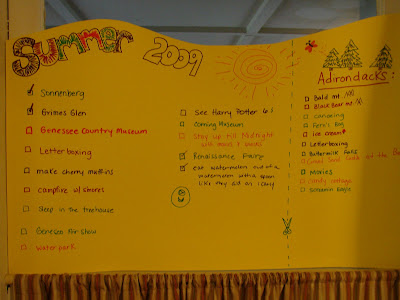 Summer 2009
Sonnenberg
Grimes Glen
Genessee Country Museum
Letterboxing
make cherry muffins
campfire w/ smores
Sleep in the treehouse
Genesee Air Show
Waterpark
See Harry Potter 6!
Corning Museum
Stay up till Midnight
with movies &
Renaissance Faire
eat watermelon out of a
watermelon with a spoon
like they did on iCarly
Adirondacks:
Bald mt.
Black Bear mt.
canoeing
Ferris
ice cream!
Letterboxing
Buttermilk Falls
at the
Movies
candy cottage